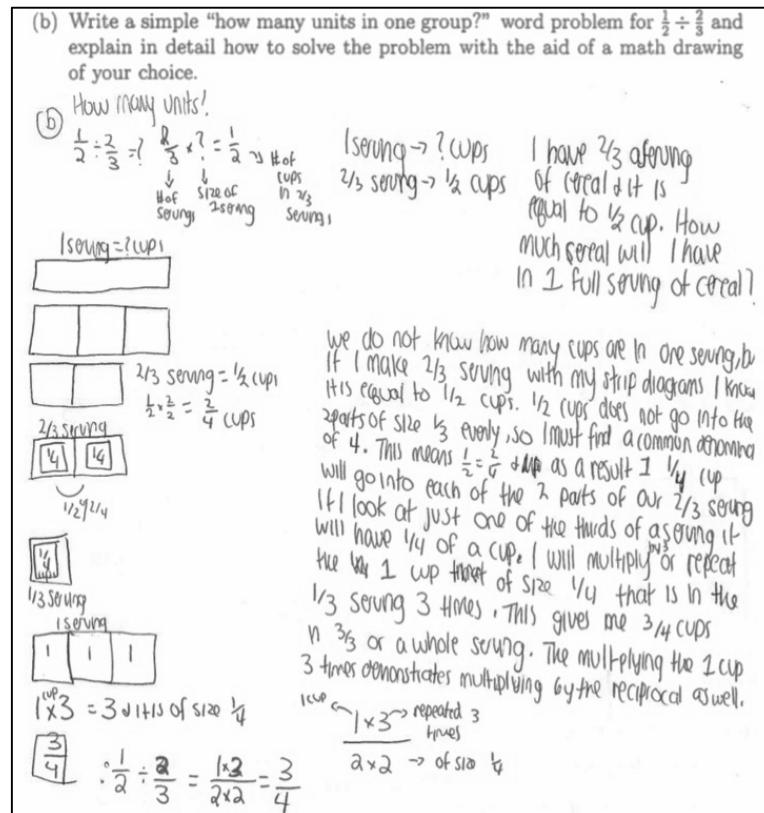 (b) Write a simple "how many units in one group?" word problem for 1/2 ÷ 2/3 and
explain in detail how to solve the problem with the aid of a math drawing
of your choice.
(b) How many units?
1/2 ÷ 2/3 = ? 2/3 × ? = 1/2 → # of cups in 2/3 servings
# of servings
size of 1 serving
1 serving → ? cups
2/3 serving → 1/2 cups
I have 2/3 a serving
of cereal & it is
equal to 1/2 cup. How
much cereal will I have
in 1 full serving of cereal?
1 serving = ? cups
2/3 serving = 1/2 cups
1/2 × 2/2 = 2/4 cups
2/3 serving
1/4 1/4
1/2 2/4
1/4
1/3 serving
1 serving
1 1 1
1 cup × 3 = 3 & it is of size 1/4
3/4
∴ 1/2 ÷ 2/3 = 1×3/2×2 = 3/4
we do not know how many cups are in one serving, b
if I make 2/3 serving with my strip diagrams I know
it is equal to 1/2 cups. 1/2 cups does not go into the
2 parts of size 1/3 evenly, so I must find a common denomina
of 4. This means 1/2 = 2/4 & as a result 1 1/4 cup
will go into each of the 2 parts of our 2/3 serving
If I look at just one of the thirds of a serving it
will have 1/4 of a cup. I will multiply by 3 or repeat
the 1 cup of size 1/4 that is in the
1/3 serving 3 times. This gives me 3/4 cups
in 3/3 or a whole serving. The multiplying the 1 cup
3 times demonstrates multiplying by the reciprocal as well.
1 cup ← 1×3 → repeated 3 times
2×2 → of size 1/4